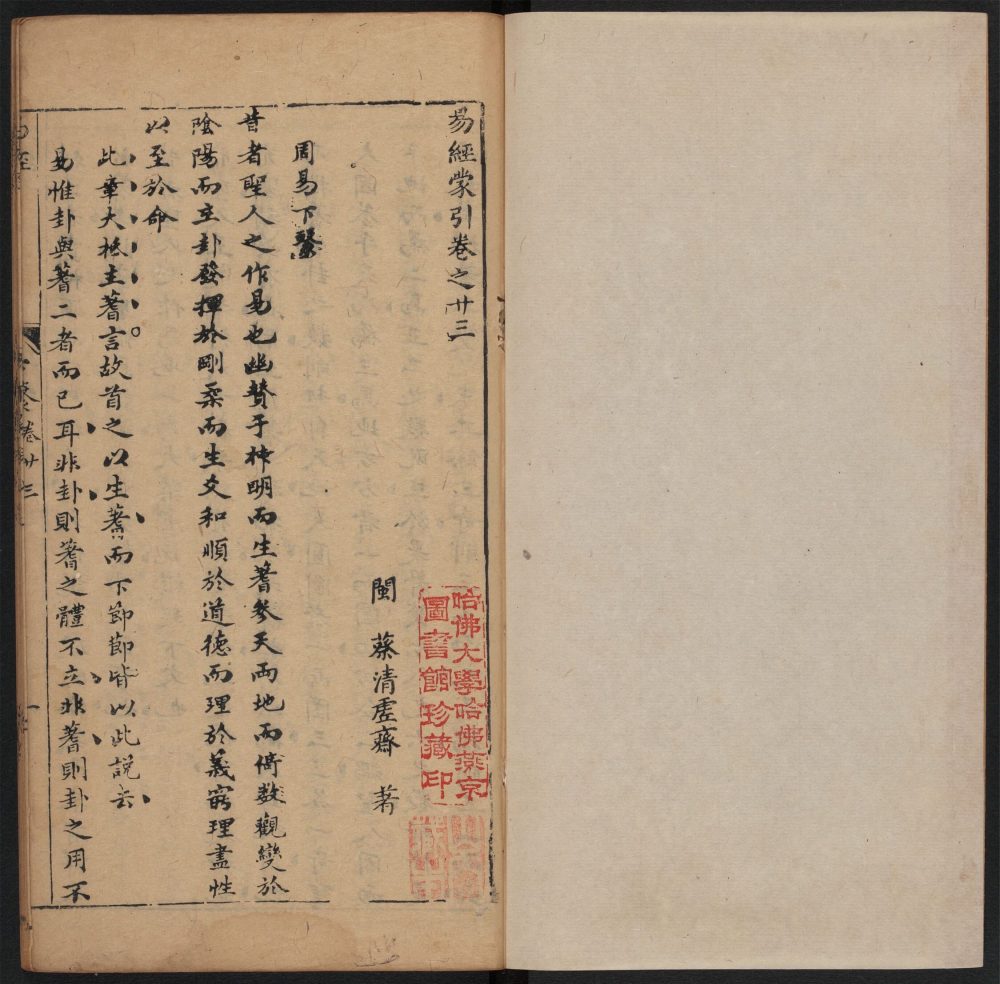 易經蒙引卷之廿三
哈佛大學哈佛燕京
圖書館珍藏印
閩 蔡清虛齋 著
周易下繫
昔者聖人之作易也幽贊于神明而生蓍參天兩地而倚數觀變於
陰陽而立卦發揮於剛柔而生爻和順於道德而理於義窮理盡性
以至於命
此章大抵主蓍言故首之以生蓍而下節節皆以此說去
易惟卦與蓍二者而已耳非卦則蓍之體不立非蓍則卦之用不
卷廿三
一